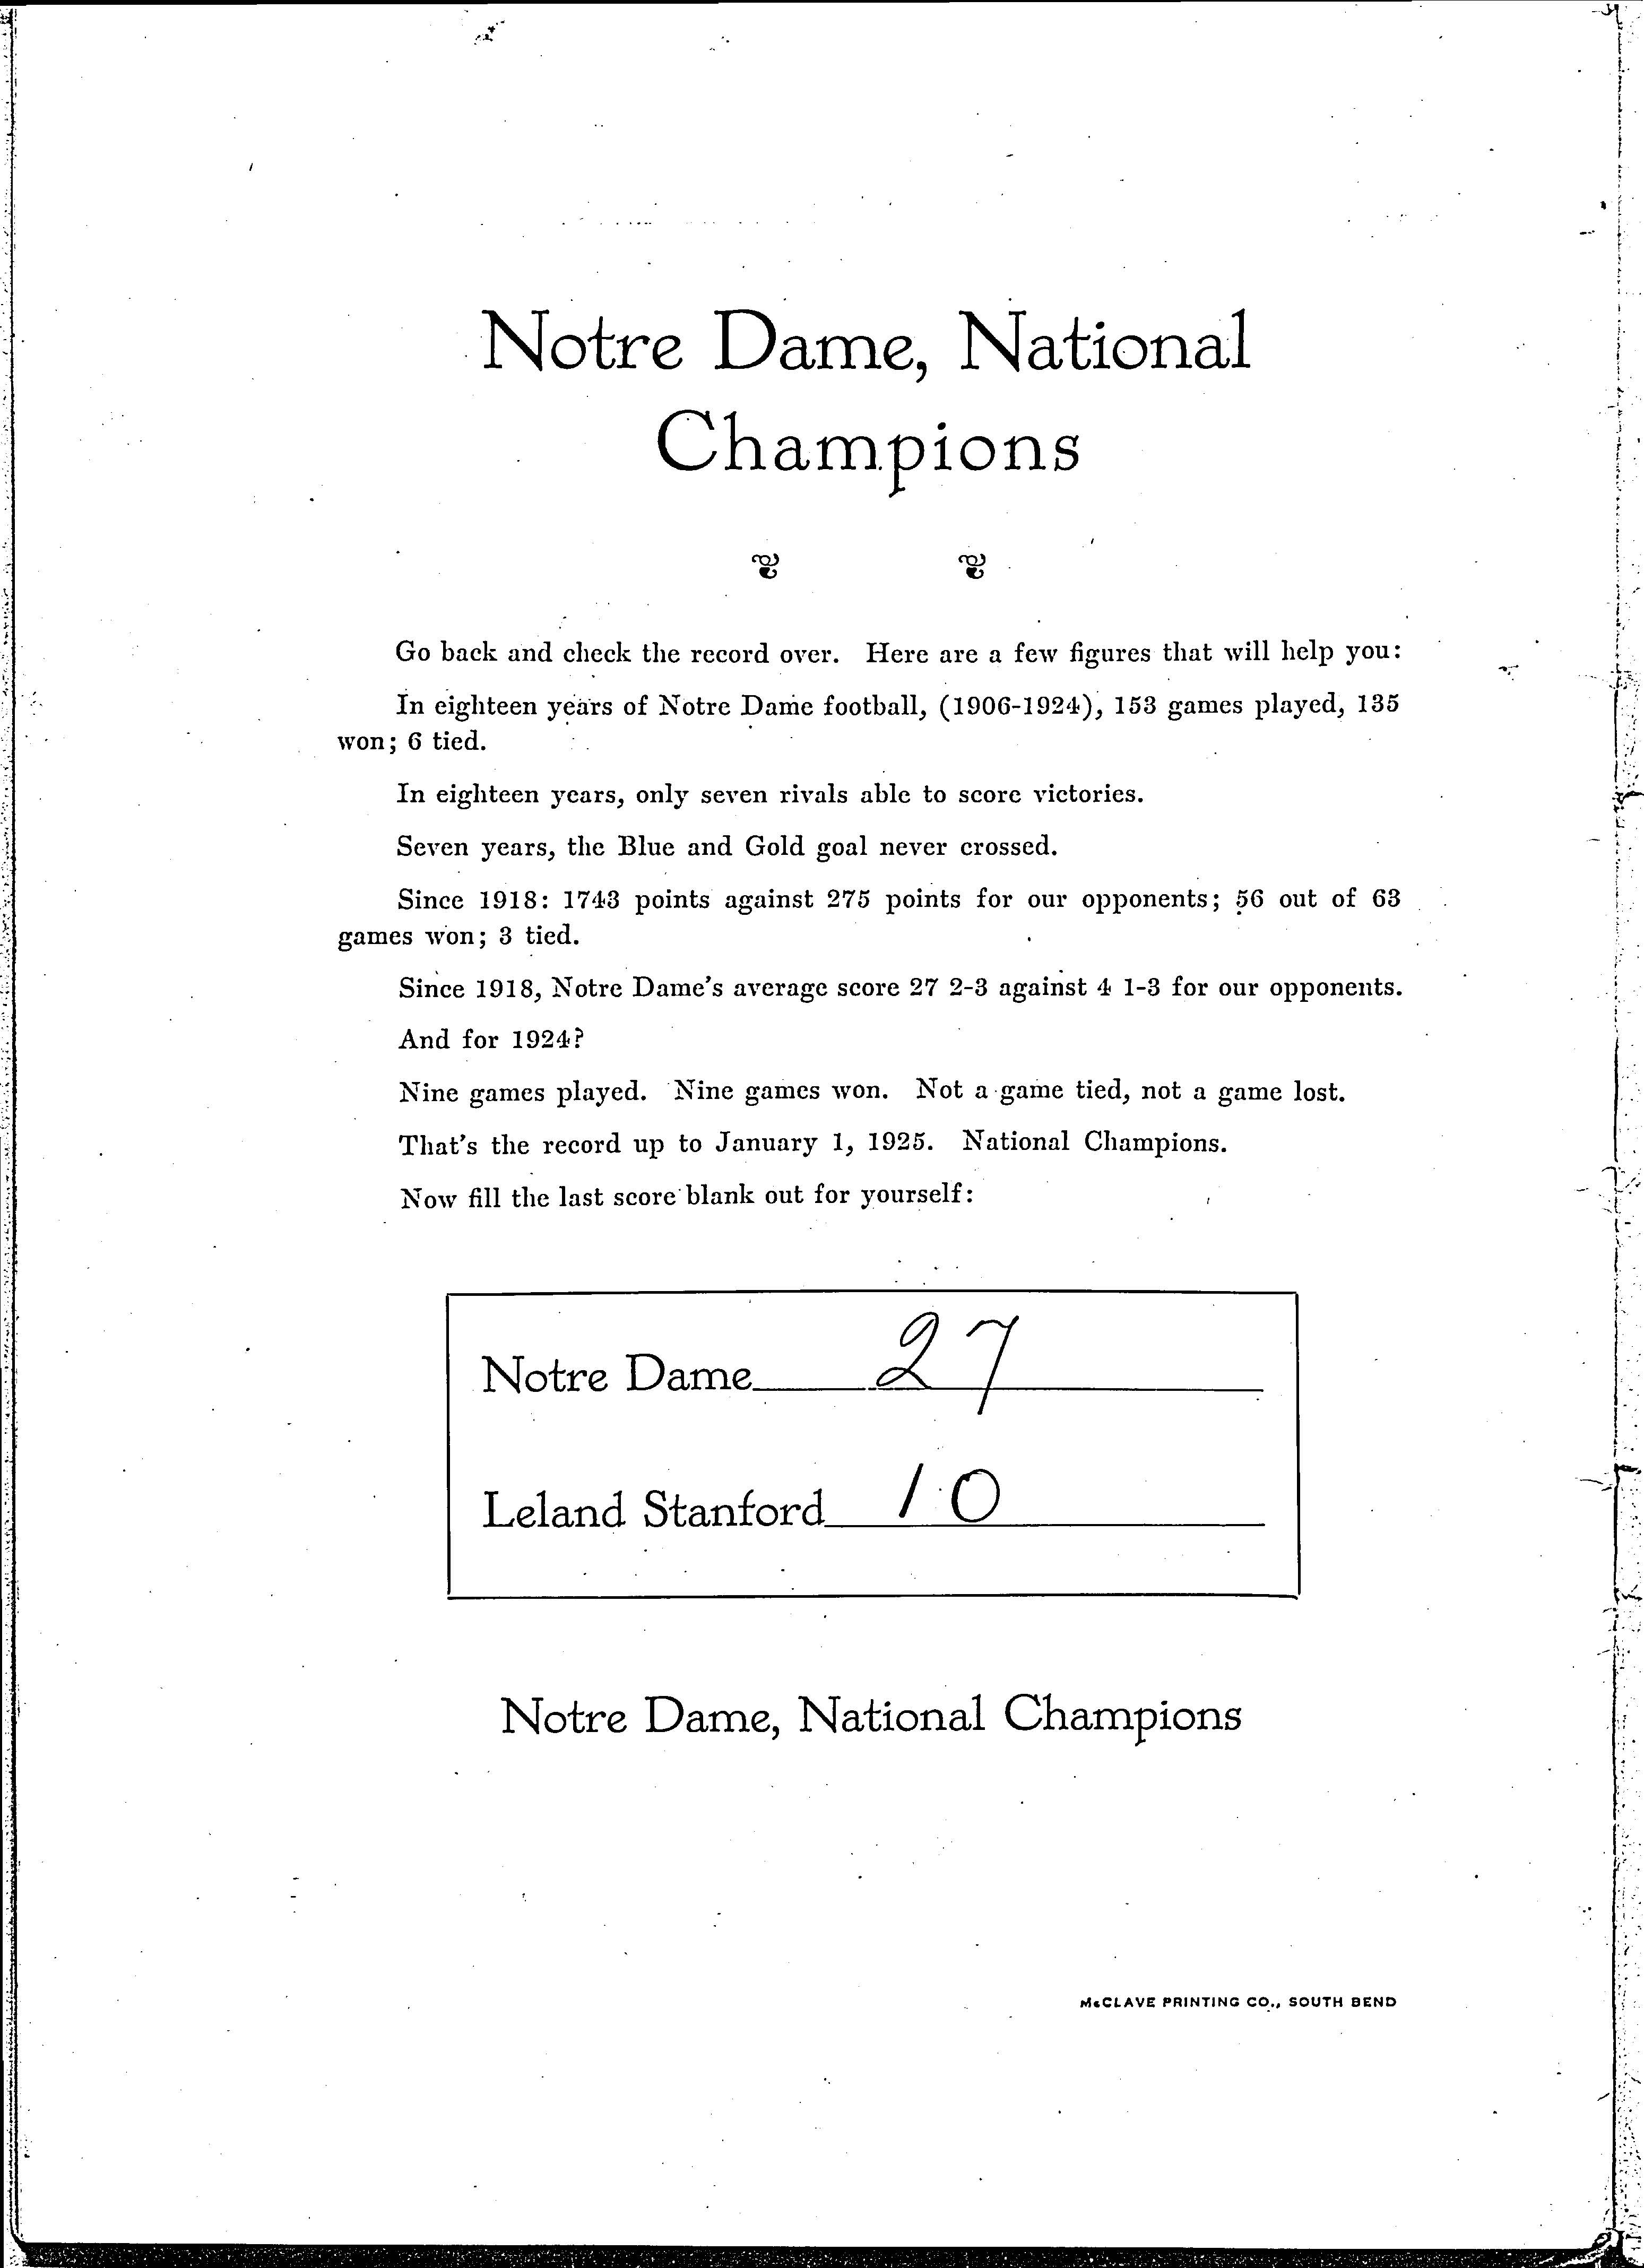 Notre Dame, National
Champions
Go back and check the record over. Here are a few figures that will help you:
In eighteen years of Notre Dame football, (1906-1924), 153 games played, 135
won; 6 tied.
In eighteen years, only seven rivals able to score victories.
Seven years, the Blue and Gold goal never crossed.
Since 1918: 1743 points against 275 points for our opponents; 56 out of 63
games won; 3 tied.
Since 1918, Notre Dame's average score 27 2-3 against 4 1-3 for our opponents.
And for 1924?
Nine games played. Nine games won. Not a game tied, not a game lost.
That's the record up to January 1, 1925. National Champions.
Now fill the last score blank out for yourself:
Notre Dame 27
Leland Stanford 10
Notre Dame, National Champions
McCLAVE PRINTING CO., SOUTH BEND